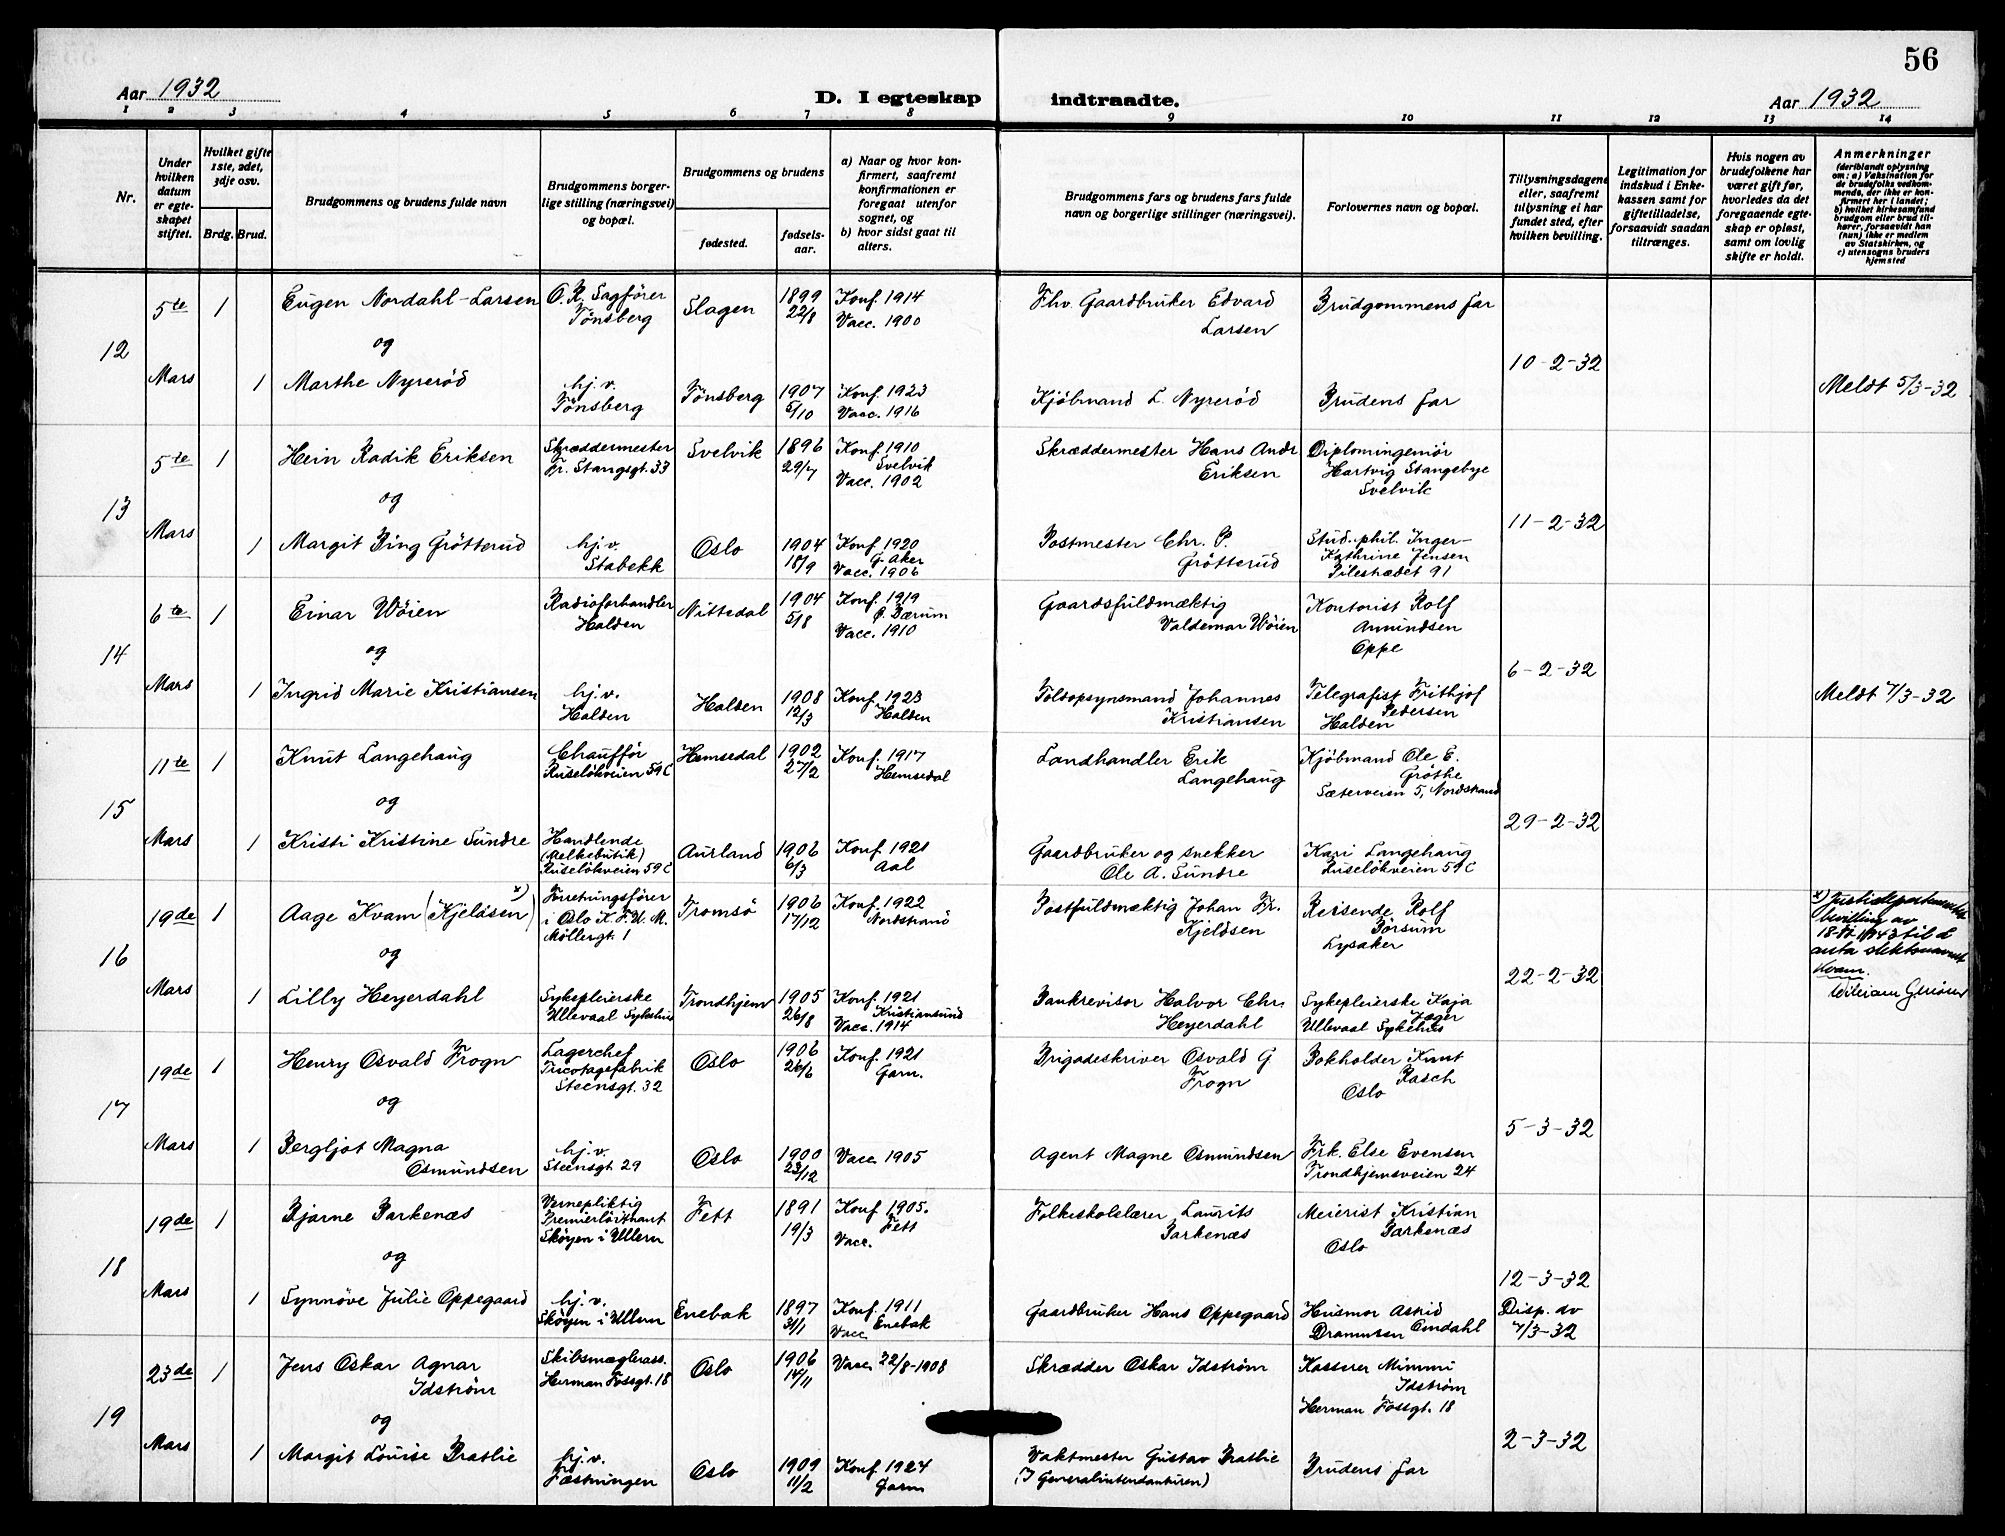 56
Aar 1932
D. I egteskap indtraadte.
Aar 1932
1 2 3 4 5 6 7 8 9 10 11 12 13 14
Nr.
Under hvilken datum er egteskapet stiftet.
Hvilket gifte 1ste, 2det, 3dje osv.
Brdg. Brud.
Brudgommens og brudens fulde navn
Brudgommens borgerlige stilling (næringsvei) og bopæl.
Brudgommens og brudens
fødested.
fødselsaar.
a) Naar og hvor konfirmert, saafremt konfirmationen er foregaat utenfor sognet, og
b) hvor sidst gaat til alters.
Brudgommens fars og brudens fars fulde navn og borgerlige stillinger (næringsvei).
Forlovernes navn og bopæl.
Tillysningsdagene eller, saafremt tillysning ei har fundet sted, efter hvilken bevilling.
Legitimation for indskud i Enkekassen samt for giftetilladelse, forsaavidt saadan tiltrænges.
Hvis nogen av brudefolkene har været gift før, hvorledes da det foregaaende egteskap er opløst, samt om lovlig skifte er holdt.
Anmerkninger
(deriblandt oplysning om: a) Vaksination for de brudefolks vedkommende, der ikke er konfirmert her i landet;
b) hvilket kirkesamfund brudgom eller brud tilhører, forsaavidt han (hun) ikke er medlem av Statskirken, og
c) utensogns bruders hjemsted
12
5te Mars
1
Eugen Nordahl-Larsen
O.R. Sagfører
Tønsberg
Slagen
1899
22/8
Konf. 1914
Vacc. 1900
Fhv. Gaardbruker Edvard
Larsen
Brudgommens far
og
10-2-32
1
Marthe Nyrerød
hj.v.
Tønsberg
Tønsberg
1907
5/10
Konf. 1923
Vacc. 1916
Kjøbmand L. Nyrerød
Brudens far
Meldt 5/3-32
13
5te Mars
1
Hein Radik Eriksen
Skræddermester
Fr. Stangsgt. 33
Svelvik
1896
29/7
Konf. 1910
Svelvik
Vacc. 1902
Skræddermester Hans Andr
Eriksen
Diplomingeniør
Hartvig Stangebye
Svelvik
og
11-2-32
1
Margit Bing Grøtterud
hj.v.
Stabekk
Oslo
1904
18/9
Konf. 1920
G. Aker
Vacc. 1906
Postmester Chr. P.
Grøtterud
Stud. phil. Inger-
Kathrine Jensen
Pilestrædet 91
14
6te Mars
1
Einar Wøien
Radioforhandler
Halden
Nittedal
1904
5/8
Konf. 1919
Ø. Bærum
Vacc. 1910
Gaardsfuldmæktig
Valdemar Wøien
Kontorist Rolf
Amundsen
Oppe
og
6-2-32
1
Ingrid Marie Kristiansen
hj.v.
Halden
Halden
1908
12/3
Konf. 1923
Halden
Toldopsynsmand Johannes
Kristiansen
Telegrafist Frithjof
Pedersen
Halden
Meldt 7/3-32
15
11te Mars
1
Knut Langehaug
Chauffør
Ruseløkveien 59C
Hemsedal
1902
27/2
Konf. 1917
Hemsedal
Landhandler Erik
Langehaug
Kjøbmand Ole E.
Grøthe
Sæterveien 5, Nordstrand
og
29-2-32
1
Kristi Kristine Sundre
Handlende
(Melkebutik)
Ruseløkveien 59C
Aurland
1906
6/3
Konf. 1921
Aal
Gaardbruker og snekker
Ole A. Sundre
Kari Langehaug
Ruseløkveien 59C
16
19de Mars
1
Aage Kvam (Kjeldsen) x)
Forretningsfører
i Oslo K.F.U.M.
Møllergt. 1
Tromsø
1906
17/12
Konf. 1922
Nordstrand
Postfuldmæktig Johan Fr.
Kjeldsen
Reisende Rolf
Børsum
Lysaker
x) Justisdepartementets
bevilling av
til å
anta slektsnavnet
Kvam.
og
22-2-32
1
Lilly Heyerdahl
Sykepleierske
Ullevaal Sykehus
Trondhjem
1905
26/8
Konf. 1921
Kristiansund
Vacc. 1914
Bankrevisor Halvor Chr.
Heyerdahl
Sykepleierske Kaja
Jager
Ullevaal Sykehus
17
19de Mars
1
Henry Osvald Frogn
Lagerchef
Tricotagefabrik
Steensgt. 32
Oslo
1906
26/6
Konf. 1921
Garn.
Brigadeskriver Osvald G
Frogn
Bokholder Knut
Rasch
Oslo
og
5-3-32
1
Bergljot Magna
Osmundsen
hj.v.
Steensgt. 29
Oslo
1900
23/12
Vacc. 1905
Agent Magne Osmundsen
Frk. Else Evensen
Trondhjemsveien 24
18
19de Mars
1
Bjarne Barkenæs
Vernepliktig
Premierløitnant
Skøyen i Ullern
Fett
1891
19/3
Konf. 1905.
Fett
Vacc.
Folkeskolelærer Laurits
Barkenæs
Meierist Kristian
Barkenæs
Oslo
og
12-3-32
1
Synnøve Julie Oppegaard
hj.v.
Skøyen i Ullern
Enebak
1897
31/1
Konf. 1911
Enebak
Vacc
Gaardbruker Hans Oppegaard
Husmor Astrid
Omdahl
Drammen
Disp. av
7/3-32
19
23de Mars
1
Jens Oskar Agnar
Idstrøm
Skibsmæglerass.
Herman Fossgt. 18
Oslo
1906
14/11
Vacc. 22/8-1908
Skrædder Oskar Idstrøm
Kasserer Mimmi
Idstrøm
Herman Fossgt. 18
og
2-3-32
1
Margit Louise Bratlie
hj.v.
Fæstningen
Oslo
1909
11/2
Konf. 1924
Garn
Vaktmester Gustav Bratlie
(I Generalintendanturen)
Brudens far